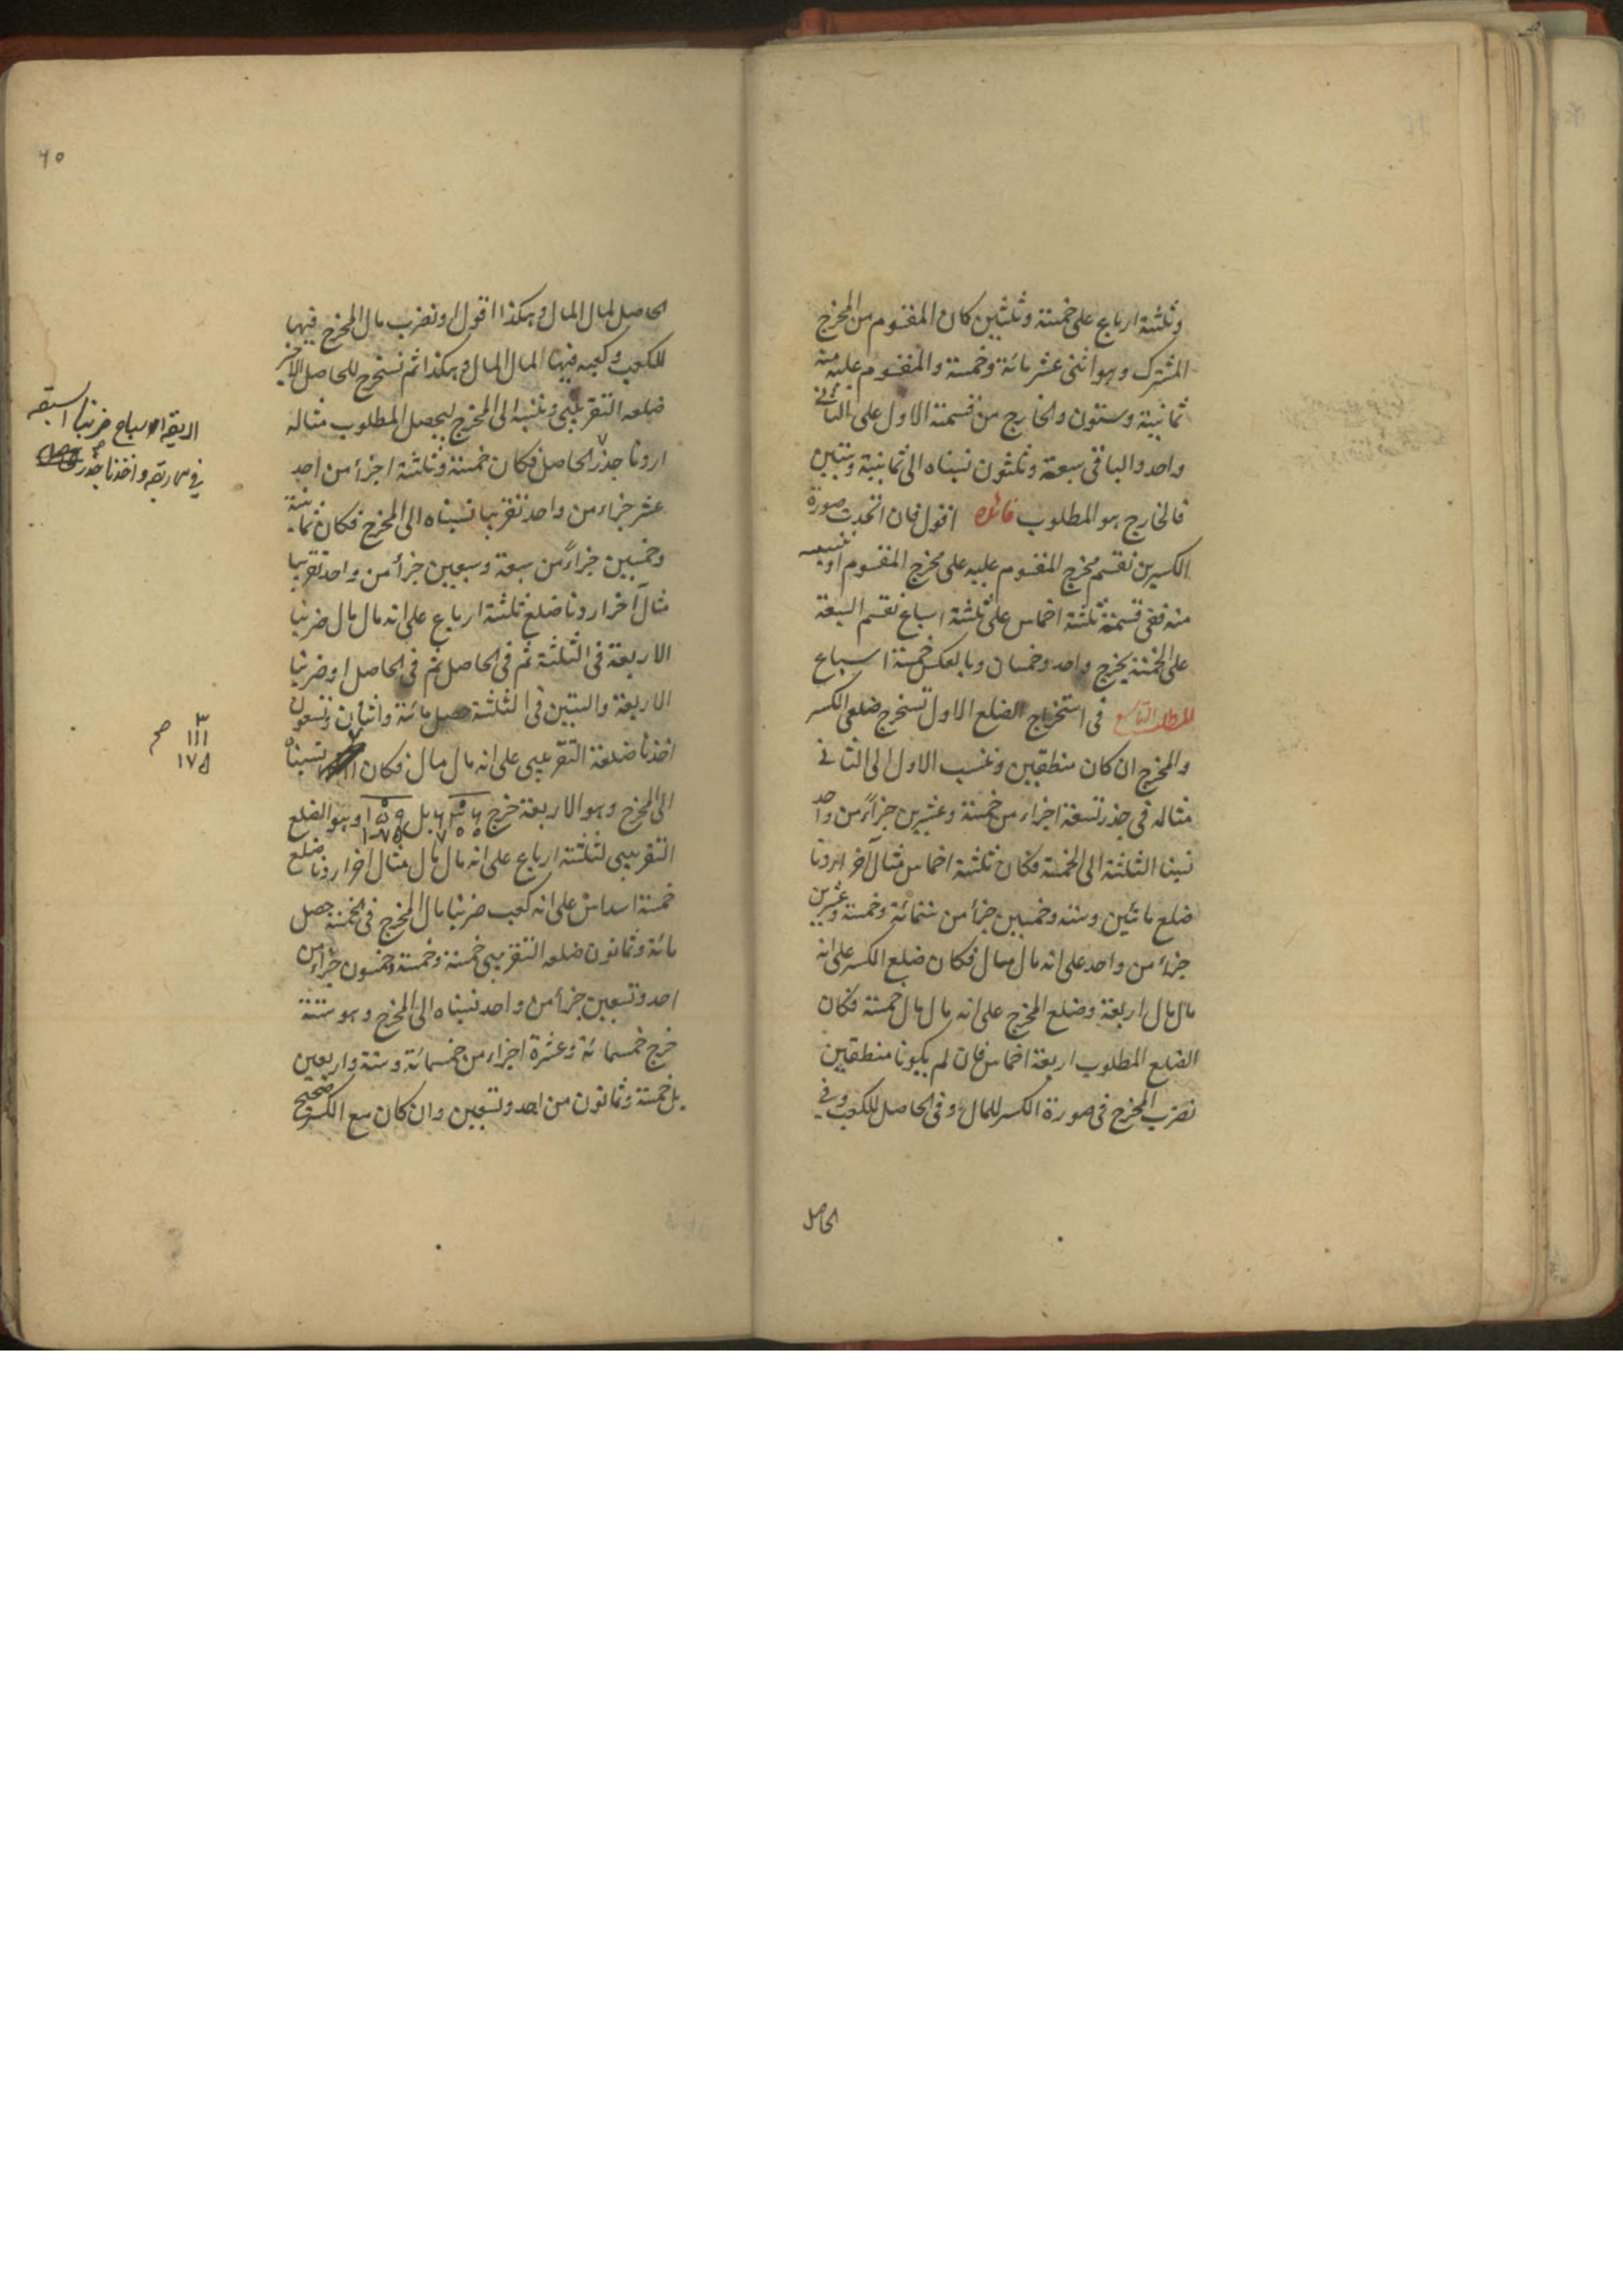 وثلثة ارباع على خمسة وثلثين كان المقسوم من المخرج
المشترك وهو اثنى عشر مائة وخمسة والمقسوم عليه منه
ثمانية وستون والخارج من قسمة الاول على الثانى
واحد والباقى سبعة وثلثون نسبناه الى ثمانية وستين
فالخارج هو المطلوب فائدة اقول فان اتحدت صورة
الكسرين نقسم مخرج المقسوم عليه على مخرج المقسوم او ننسبه
منه ففى قسمة ثلثة اخماس على ثلثة اسباع نقسم السبعة
على الخمسة يخرج واحد وخمسان وبالعكس خمسة اسباع
المطلب التاسع فى استخراج الضلع الاول نستخرج ضلعى الكسر
والمخرج ان كان منطقين وننسب الاول الى الثانى
مثاله فى جذر تسعة اجزاء من خمسة وعشرين جزاءً من واحد
نسبنا الثلثة الى الخمسة فكان ثلثة اخماس مثال آخر اردنا
ضلع مائتين وستة وخمسين جزأ من ستمائة وخمسة وعشرين
جزء من واحد على انه مال مال فكان ضلع الكسر على انه
مال مال اربعة وضلع المخرج على انه مال مال خمسة فكان
الضلع المطلوب اربعة اخماس فان لم يكونا منطقين
نضرب المخرج فى صورة الكسر للمال وفى الحاصل للكعب وفى
الحاصل
٦٥
الحاصل لمال المال وهكذا اقول او نضرب مال المخرج فيها
للكعب وكعبه فيها المال المال وهكذا ثم نستخرج للحاصل الاخير
ضلعه التقريبى وننسبه الى المخرج ليحصل المطلوب مثاله
اردنا جذر الحاصل فكان خمسة وثلثة اجزأ من احد
عشر جزاء من واحد تقريبا نسبناه الى المخرج فكان ثمانية
وخمسين جزاءً من سبعة وسبعين جزأ من واحد تقريبا
مثال آخر اردنا ضلع ثلثة ارباع على انه مال مال ضربنا
الاربعة فى الثلثة ثم فى الحاصل ثم فى الحاصل او ضربنا
الاربعة والستين فى الثلثة حصل مائة واثنان وتسعون
اخذنا ضلعه التقريبى على انه مال مال فكان نسبناه
الى المخرج وهو الاربعة خرج بل وهو الضلع
التقريبى لثلثة ارباع على انه مال مال مثال آخر اردنا ضلع
خمسة اسداس على انه كعب ضربنا مال المخرج فى الخمسة حصل
مائة وثمانون ضلعه التقريبى خمسة وخمسة وخمسون جزاء من
احد وتسعين جزأ من واحد نسبناه الى المخرج وهو ستة
خرج خمسمائة وعشرة اجزاء من خمسمائة وستة واربعين
بل خمسة وثمانون من احد وتسعين وان كان مع الكسر صحيح
اسباع ضربنا السبعة
واخذنا جذر
٣
١١١ صح
١٧٥